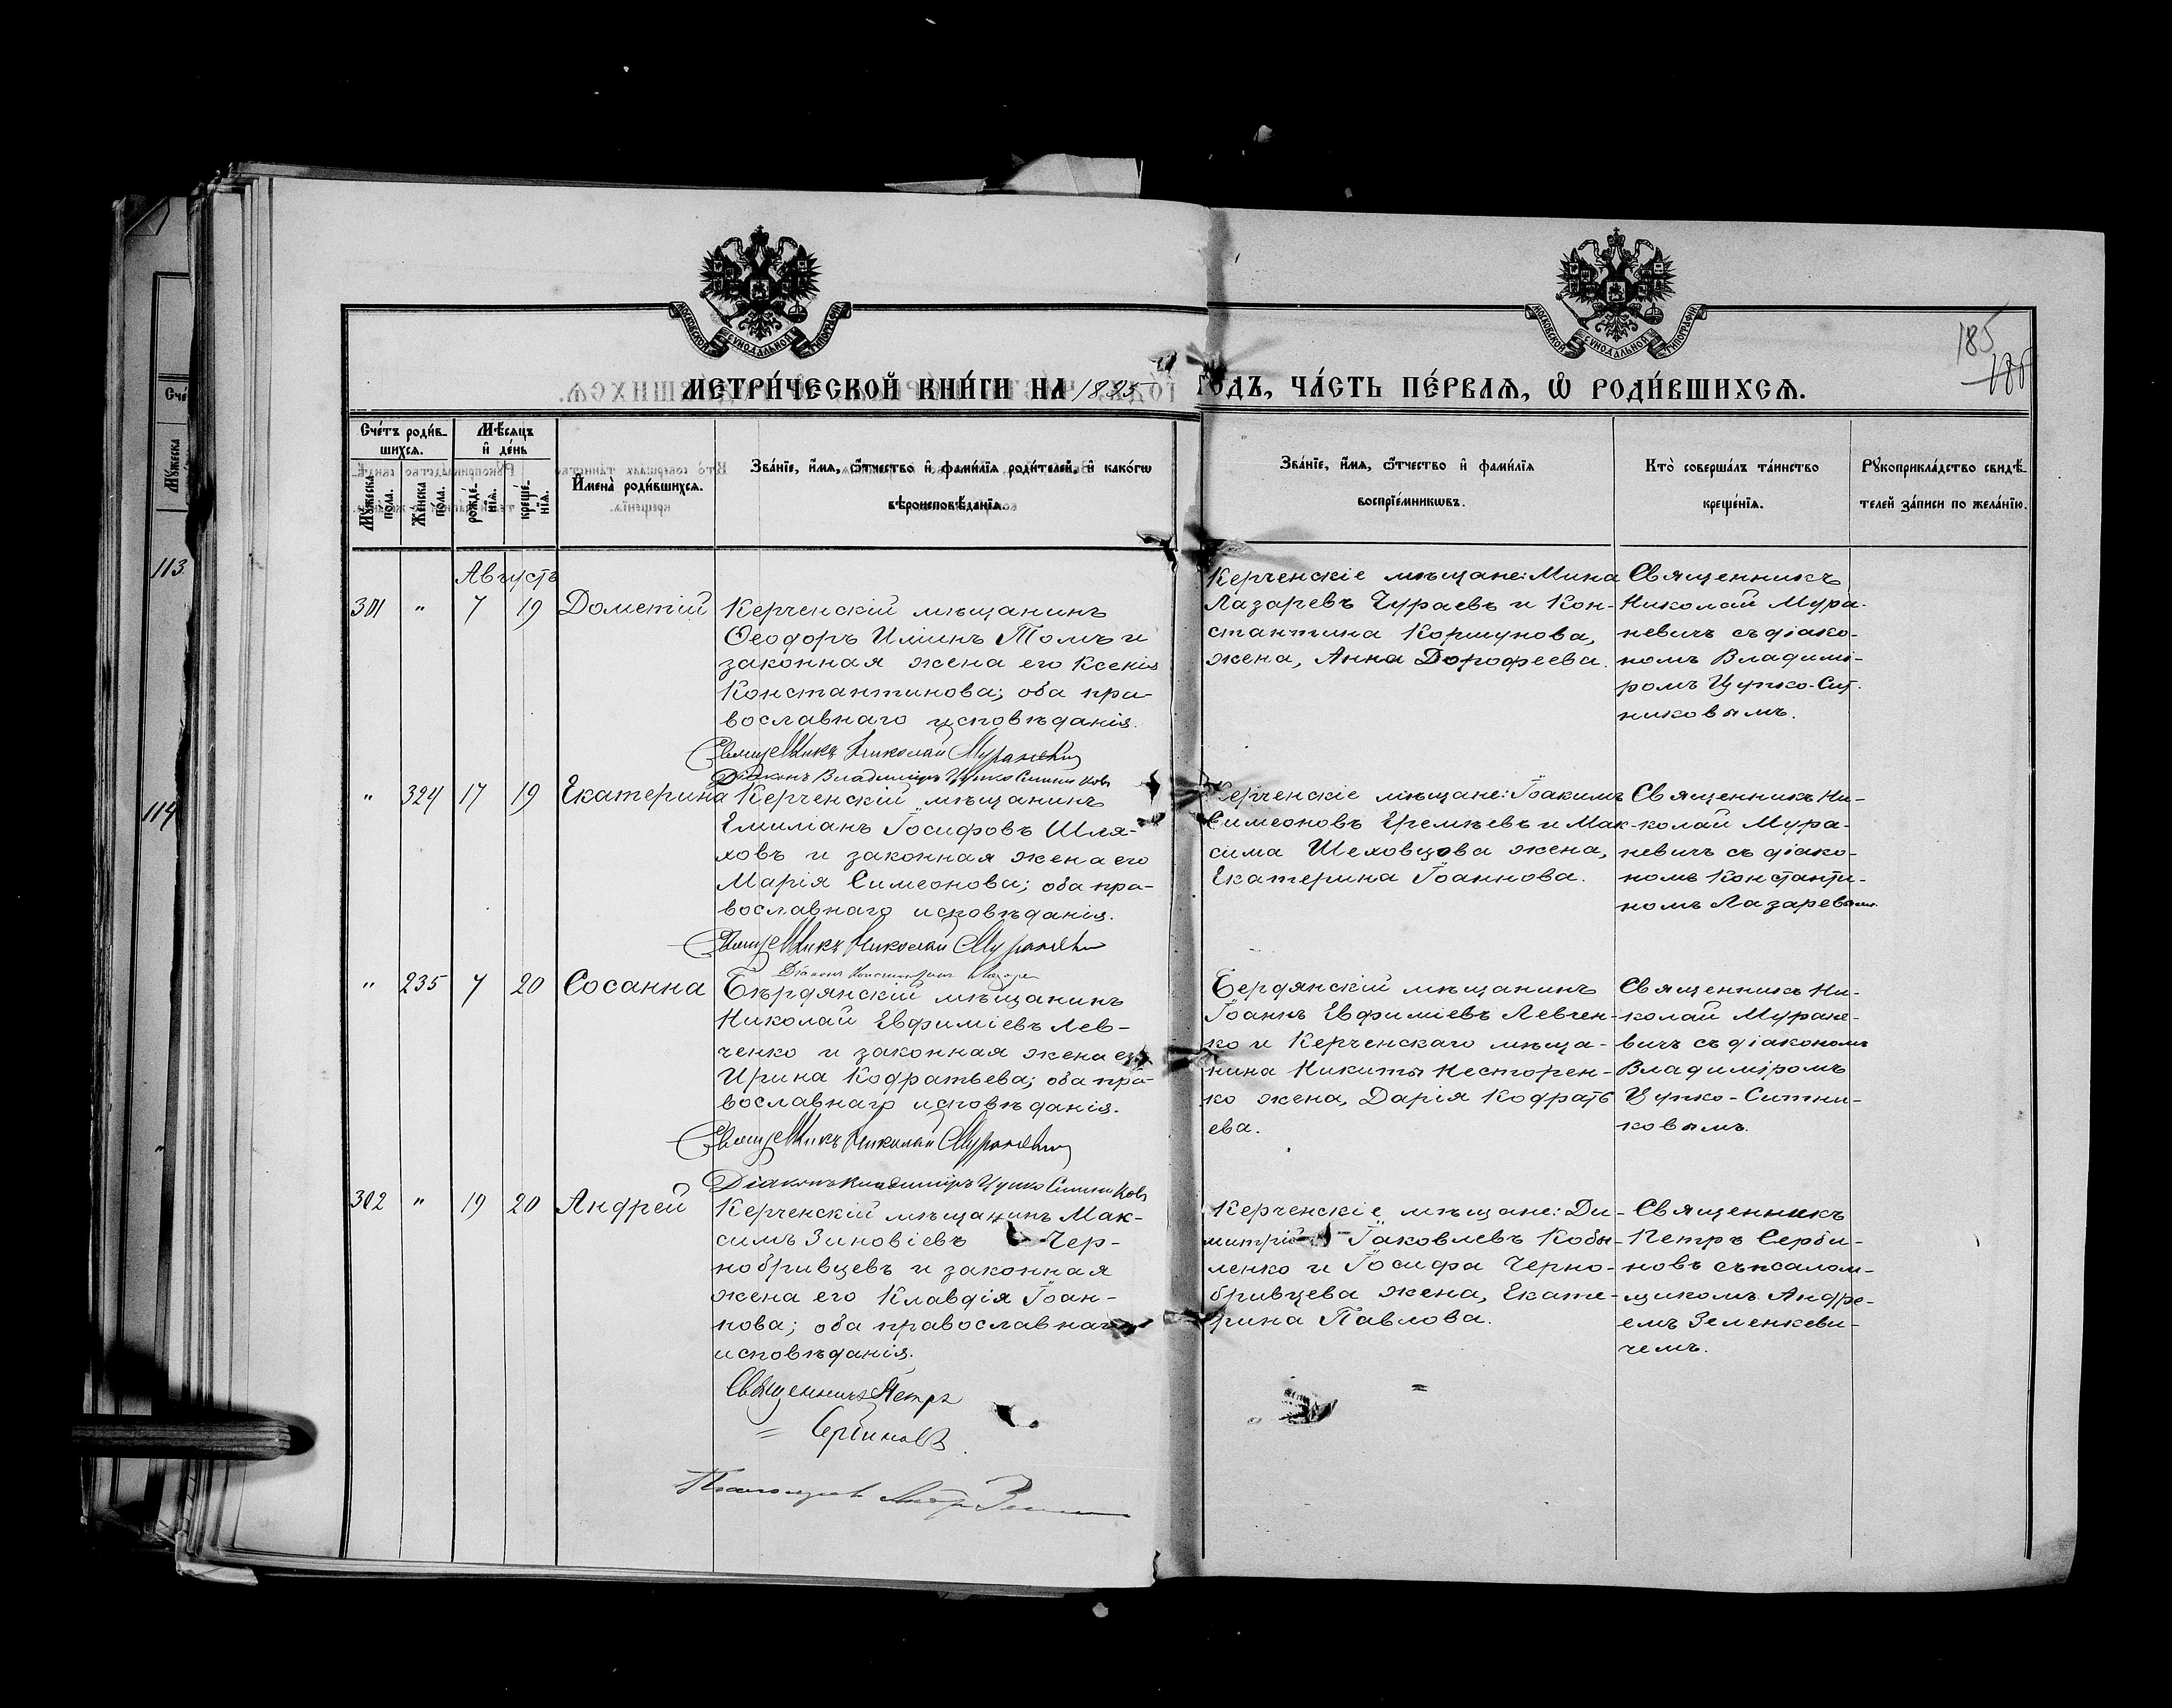 МОСКОВСКОЙ СѴНОДАЛЬНОЙ ТИПОГРАФІИ
МОСКОВСКОЙ СѴНОДАЛЬНОЙ ТИПОГРАФІИ
185
МЕТРИ́ЧЕСКОЙ КНИ́ГИ НА 1895 ГОДЪ, ЧА́СТЬ ПЕ́РВАѦ, Ѡ РОДИ́ВШИХСѦ.
Сче́тъ роди́в-
шихсѧ.
Мѣ́сѧцъ
и҆ де́нь
Мꙋ́жеска по́ла.
Же́нска по́ла.
рожде́-нїѧ.
креще́-нїѧ.
И҆мена̀ роди́вшихсѧ.
Зва́нїе, и҆́мѧ, ѻ҆́тчество и҆ фами́лїѧ роди́телей, и҆ како́гѡ
вѣроисповѣ́данїѧ.
Зва́нїе, и҆́мѧ, ѻ҆́тчество и҆ фами́лїѧ
воспрїе́мникѡвъ.
Кто̀ соверша́лъ та́инство
креще́нїѧ.
Рꙋкоприкла́дство свидѣ́-
телей за́писи по жела́нїю.
113
114
Августъ
301 " 7 19 Дометій
Керченскій мѣщанинъ
Ѳеодоръ Илiинъ Томъ и
законная жена его Ксенія
Константинова; оба пра-
вославнаго исповѣданія.
Священникъ Николай Мураневич
Діаконъ Владиміръ Цупко Ситников
Керченскіе мѣщане: Мина
Лазаревъ Чураевъ и Кон-
стантина Коршунова,
жена, Анна Дорофеева.
Священникъ
Николай Мура-
невичъ съ діако-
номъ Владимі-
ромъ Цупко-Сит-
никовымъ.
" 324 17 19 Екатерина
Керченскій мѣщанинъ
Емиліанъ Іосифовъ Шля-
ховъ и законная жена его
Марія Симеонова; оба пра-
вославнаго исповѣданія.
Священникъ Николай Мураневич
Діаконъ Константинъ Лазаре
Керченскіе мѣщане: Іоакимъ
Симеоновъ Еремѣевъ и Мак-
сима Шеховцова жена,
Екатерина Іоаннова.
Священникъ Ни-
колай Мура-
невичъ съ діако-
номъ Константи-
номъ Лазаревымъ.
" 235 7 20 Сосанна
Бѣрдянскій мѣщанинъ
Николай Евфиміевъ Лев-
ченко и законная жена его
Ирина Кодратьева; оба пра-
вославнаго исповѣданія.
Священникъ Николай Мураневич
Діаконъ Владиміръ Цупко Ситников
Бердянскій мѣщанинъ
Іоаннъ Евфиміевъ Левчен-
ко и Керченскаго мѣща-
нина Никиты Несторен-
ко жена, Дарія Кодрать
ева.
Священникъ Ни-
колай Муране-
вичъ съ діакономъ
Владиміромъ
Цупко-Ситни-
ковымъ.
302 " 19 20 Андрей
Керченскій мѣщанинъ Мак-
симъ Зиновіевъ Чер-
нобривцевъ и законная
жена его Клавдія Іоан-
нова; оба православнаго
исповѣданія.
Священникъ Петръ
Сербиновъ
Псаломщик Андр
Керченскіе мѣщане: Ди-
митрій Іаковлевъ Кобы-
ленко и Іосифа Черно-
бривцева жена, Екате-
рина Павлова.
Священникъ
Петръ Серби-
новъ съ псалом-
щикомъ Андре-
емъ Зеленкеви-
чемъ.